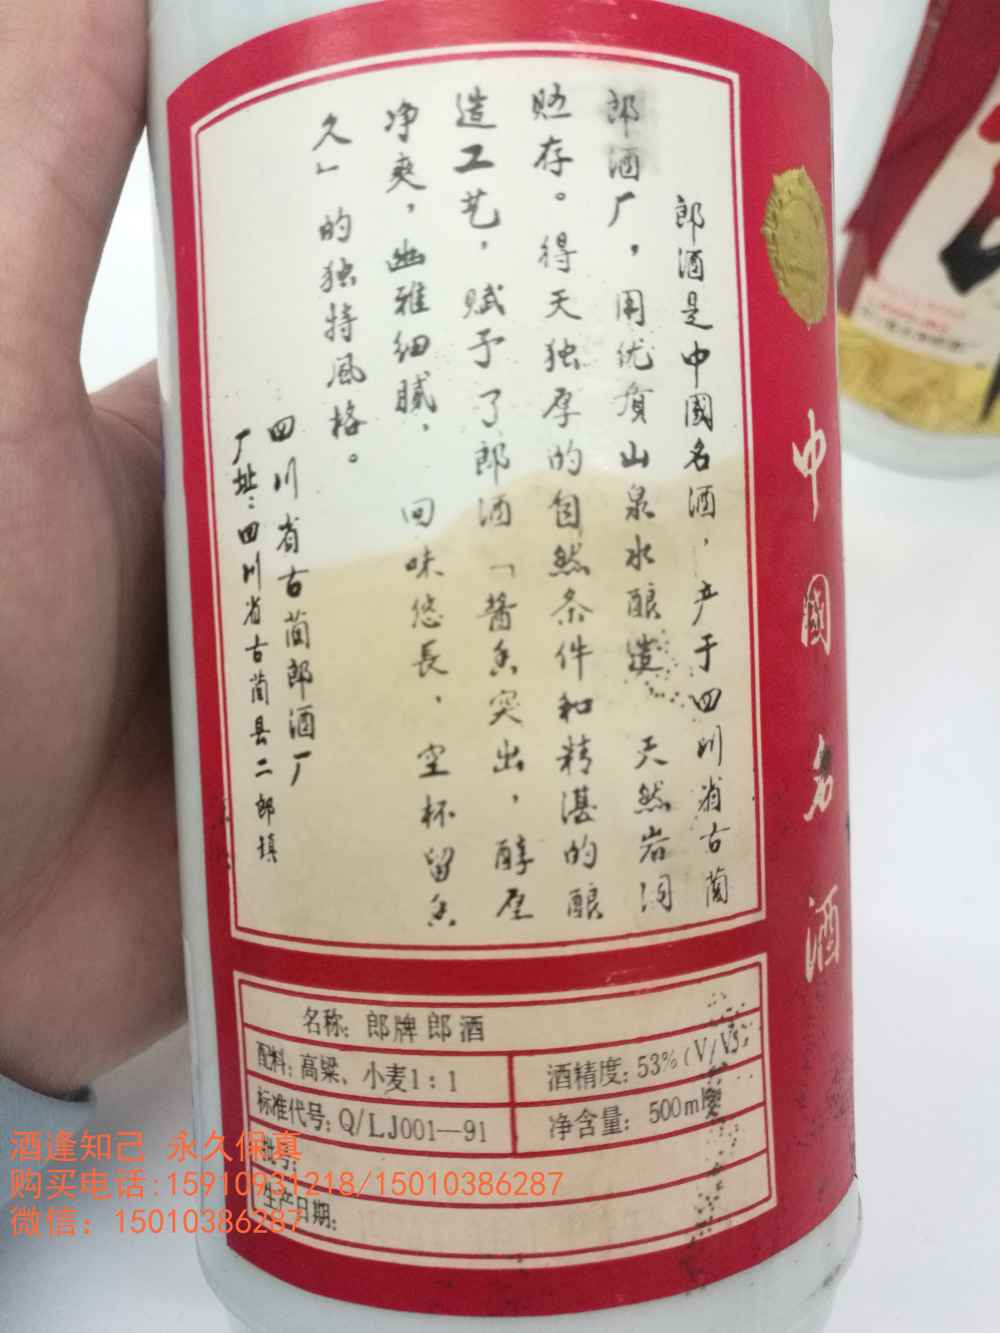 郎酒是中國名酒，产于四川省古蔺
郎酒厂，用优质山泉水酿造 天然岩洞
贮存。得天独厚的自然条件和精湛的酿
造工艺，赋予了郎酒「醬香突出，醇厚
净爽，幽雅细腻，回味悠長，空杯留香
久」的独特風格。
四川省古蔺郎酒厂
厂址：四川省古蔺县二郎镇
中國名酒
名称：郎牌郎酒
配料：高粱、小麦1：1
酒精度：53%(V/V)
标准代号：Q/LJ001—91
净含量：500ml
批号：
生产日期：
酒逢知己 永久保真
购买电话:15910931218/15010386287
微信：15010386287